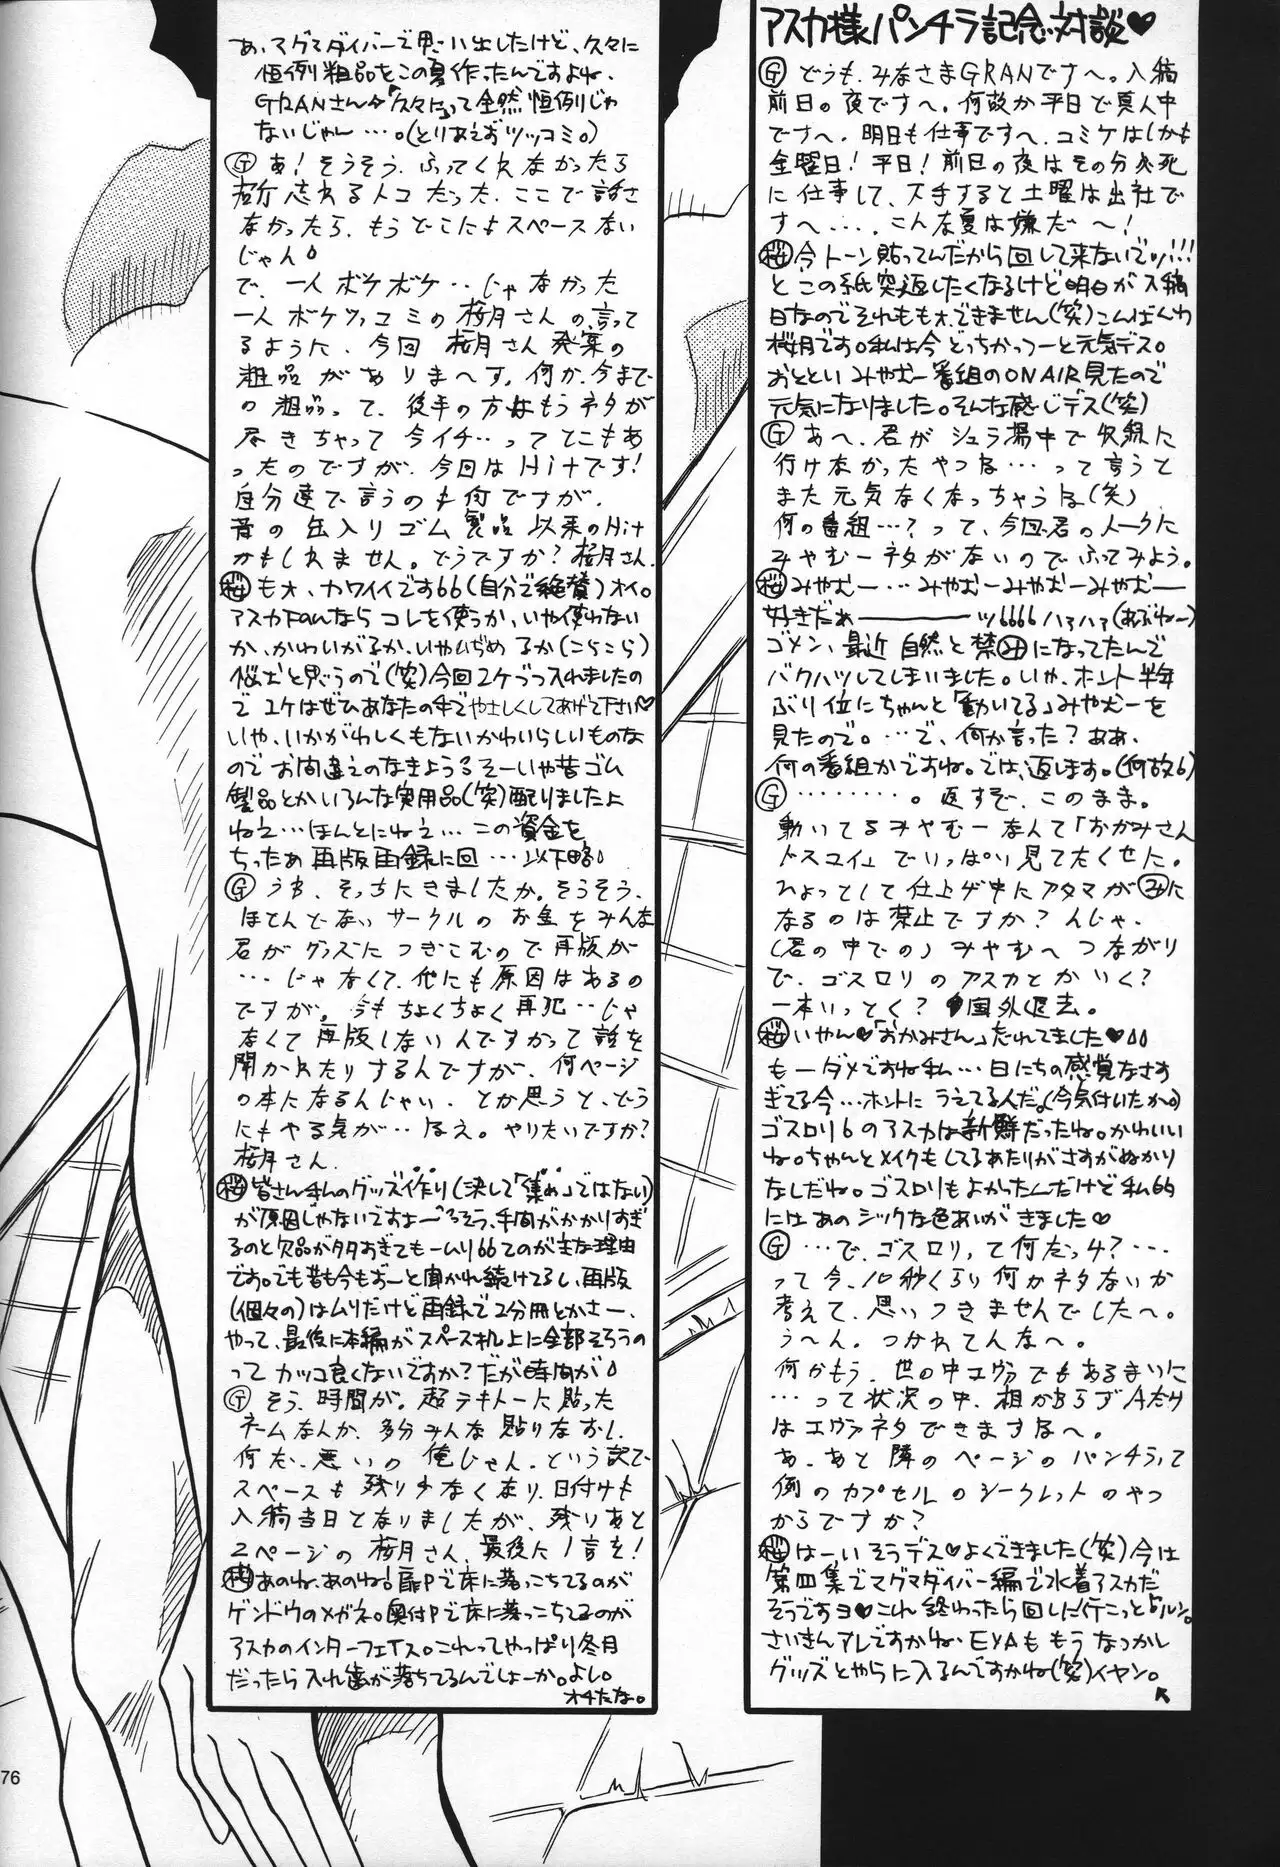 アスカ様パンチラ記念対談♥
Ⓖ どうも、みなさまGRANですへ。入稿
前日の夜ですへ。何故か平日で真人中
ですへ。明日も仕事ですへ。コミケはしかも
金曜日！平日！前日の夜はその分必死
に仕事して、下手すると土曜は出社で
すへ‥‥。こんな夏は嫌だ〜！
桜 今トーン貼ってんだから回して来ないでッ!!!
とこの紙突返したくなるけど明日が入稿
日なのでそれもできません(笑)こんばんわ
桜月です。私は今どっちかっつーと元気デス。
おとといみやむー番組のON AIR見たので
元気になりました。そんな感じデス(笑)
Ⓖ あへ、君がシュラ場中で
行けなかったやつな…って言うと
また元気なくなっちゃうな(笑)
何の番組…？って、今回君のトークに
みやむーネタがないのでふってみよう。
桜 みやむー…みやむーみやむーみやむー
好きだぁ――――ッ ハァハァ(あぶねー)
ゴメン、最近自然と禁みになってたんで
バクハツしてしまいました。いや、ホント半年
ぶり位にちゃんと「動いてる」みやむーを
見たので。…で、何か言った？ああ、
何の番組かですね。では、返します。(何故)
Ⓖ ………。返すぞ、このまま。
動いてるみやむーなんて「おかみさん
ドスコイ」でいっぱい見てたくせに。
ひょっとして仕上げ中にアタマがみに
なるのは禁止ですか？んじゃ、
(君の中での)みやむへつながり
で、ゴスロリのアスカとかいく？
一本いっとく？国外退去。
桜 いやん♥「おかみさん」たれてました♥
もーダメですね私…日にちの感覚なさす
ぎてる今…ホントにうえてる人だ。(今気付いたか。)
ゴスロリのアスカは新鮮だったね。かわいい
ね。ちゃんとメイクもしてるあたりがさすがぬかり
なしだね。ゴスロリもよかったんだけど私的
にはあのシックな色あいがきました♥
Ⓖ …で、ゴスロリって何だっけ？…
って今、10秒くらい何かネタないか
考えて、思いつきませんでしたへ。
う〜ん。つかれてんなへ。
何かもう、世の中エヴァでもあるまいに
…って状況の中、相かわらずAたり
はエヴァネタできますなへ。
あ、あと隣のページのパンチラって
例のカプセルのシークレットのやつ
からですか？
桜 はーいそうデス♥よくできました(笑)今は
第四集でマグマダイバー編で水着アスカだ
そうですヨ♥これ終わったら回しに行こっとルン。
さいきんアレですかね、EVAももうなつかし
グッズとやらに入るんですかね(笑)イヤン。
あ、マグマダイバーで思い出したけど、久々に
恒例粗品をこの夏作ったんですよね、
GRANさん。「久々に」って全然恒例じゃ
ないじゃん…。(とりあえずツッコミ。)
Ⓖ あ！そうそう、ふってくれなかったら
忘れるトコだった、ここで話さ
なかったら、もうどこにもスペースない
じゃん。
で、一人ボケボケ…じゃなかった
一人ボケツッコミの桜月さんの言って
るように、今回桜月さん発案の
粗品がありまーす。何か、今まで
の粗品って、後半の方はもうネタが
尽きちゃって今イチ…ってとこもあ
ったのですが、今回はHitです！
自分達で言うのも何ですが、
昔の缶入りゴム製品以来のHit
かもしれません。どうですか？桜月さん
桜 もォ、カワイイです(自分で絶賛)オイ。
アスカFanならコレを使うか、いや使わない
か、かわいがるか、いやいぢめるか(こらこら)
似士と思うので(笑)今回2ケづつ入れましたの
で1ケはぜひあなたの手でやさしくしてあげて下さい♥
いや、いかがわしくもないかわいらしいものな
のでお間違えのなきよう。そーいや昔ゴム
製品とかいろんな実用品(笑)配りましたよ
ねえ…ほんとにねえ…この資金を
ちったあ再版再録に回…以下略
Ⓖ うわ、そっちにきましたか。そうそう、
ほとんどないサークルのお金をみんな
君がグッズにつぎこむので再版が
…じゃなくて、他にも原因はあるの
ですが。今もちょくちょく再犯…じゃ
なくて再版しないんですかって話を
聞かれたりするんですが、何ページ
の本になるんじゃい、とか思うと、どう
にもやる気が…ねえ。やりたいですか？
桜月さん
桜 皆さん私のグッズ作り(決して「集め」ではない)
が原因じゃないですよー。そう、手間がかかりすぎ
るのと欠品が多すぎてもームリってのが主な理由
です。でも昔も今もずーと聞かれ続けてるし、再版
(個々の)はムリだけど再録で2分冊とかさー、
やって、最後に本編がスペース机上に全部そろうの
ってカッコ良くないですか？だが時間が
Ⓖ そう、時間が。超テキトーに貼った
ネームなんか、多分みんな貼りなおし、
何だ、悪いの俺じゃん。という訳で
スペースも残り少なくなり、日付けも
入稿当日となりましたが、残りあと
2ページの桜月さん、最後に1言を！
桜 あのね、あのね！扉Pで床に落っこちてるのが
ゲンドウのメガネ。奥付Pで床に落っこちてるのが
アスカのインターフェイス。これってやっぱり冬月
だったら入れ歯が落ちてるんでしょーか。よし。
オチたな。
76